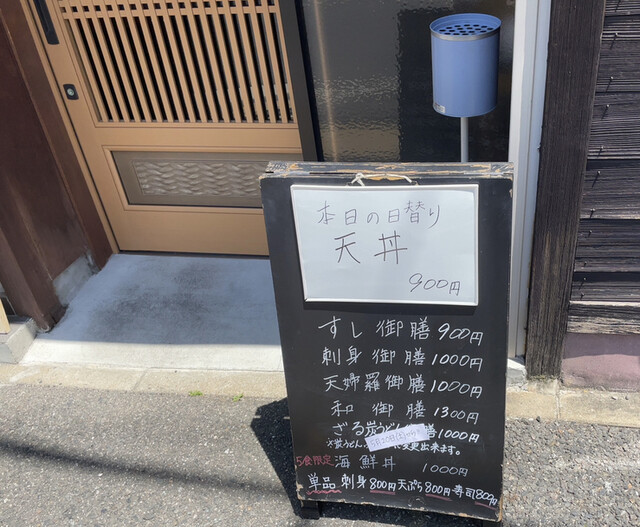 本日の日替り
天丼
900円
すし御膳 900円
刺身御膳 1000円
天婦羅御膳 1000円
和御膳 1300円
ざる炭うどん 膳 1000円
※炭うどん 変更出来ます。
5食限定 海鮮丼 1000円
単品 刺身800円 天ぷら800円 寿司800円